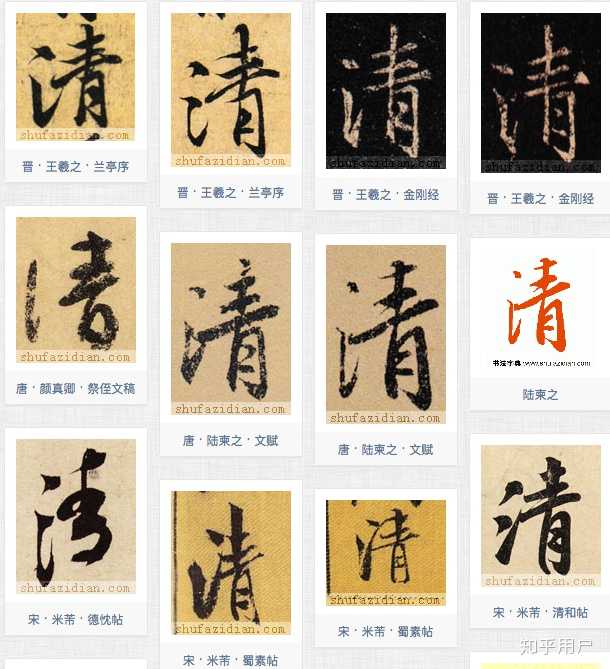 清
shufazidian.com
晋·王羲之·兰亭序
清
shufazidian.com
晋·王羲之·兰亭序
清
shufazidian.com
晋·王羲之·金刚经
清
shufazidian.com
晋·王羲之·金刚经
清
shufazidian.com
唐·颜真卿·祭侄文稿
清
shufazidian.com
唐·陆柬之·文赋
清
shufazidian.com
唐·陆柬之·文赋
清
书法字典:www.shufazidian.com
陆柬之
清
shufazidian.com
宋·米芾·德忱帖
清
shufazidian.com
宋·米芾·蜀素帖
清
shufazidian.com
宋·米芾·蜀素帖
清
shufazidian.com
宋·米芾·清和帖
知乎用户